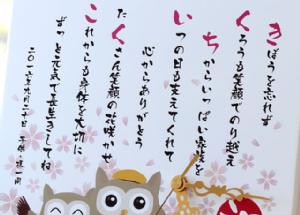 きぼうを忘れず
くろうも笑顔でのり越え
ちからいっぱい家族を
いつの日も支えてくれて
心からありがとう
たくさん笑顔の花咲かせ
これからも身体を大切に
ずっと元気で長生きしてね